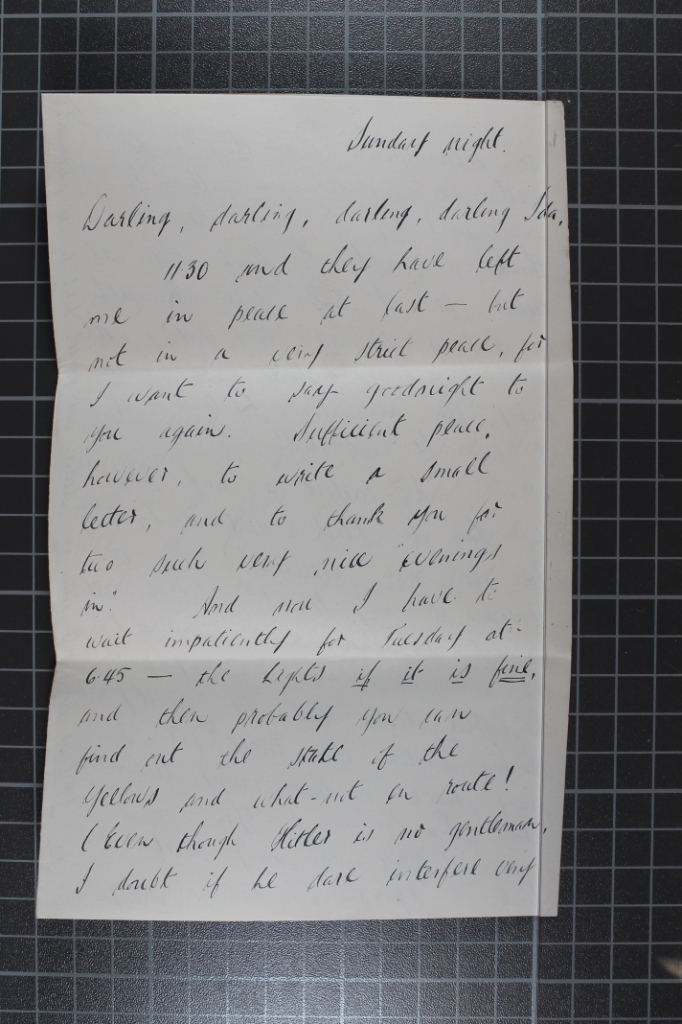 Sunday night.
Darling, darling, darling, darling Ida,
11·30 and they have left
me in peace at last — but
not in a very strict peace, for
I want to say goodnight to
you again. Sufficient peace,
however, to write a small
letter, and to thank you for
two such very nice "evenings
in". And now I have to
wait impatiently for Tuesday at
6·45 — the Lights if it is fine,
and then probably you can
find out the state of the
Yellows and what-not en route!
(Even though Hitler is no gentleman,
I doubt if he dare interfere very